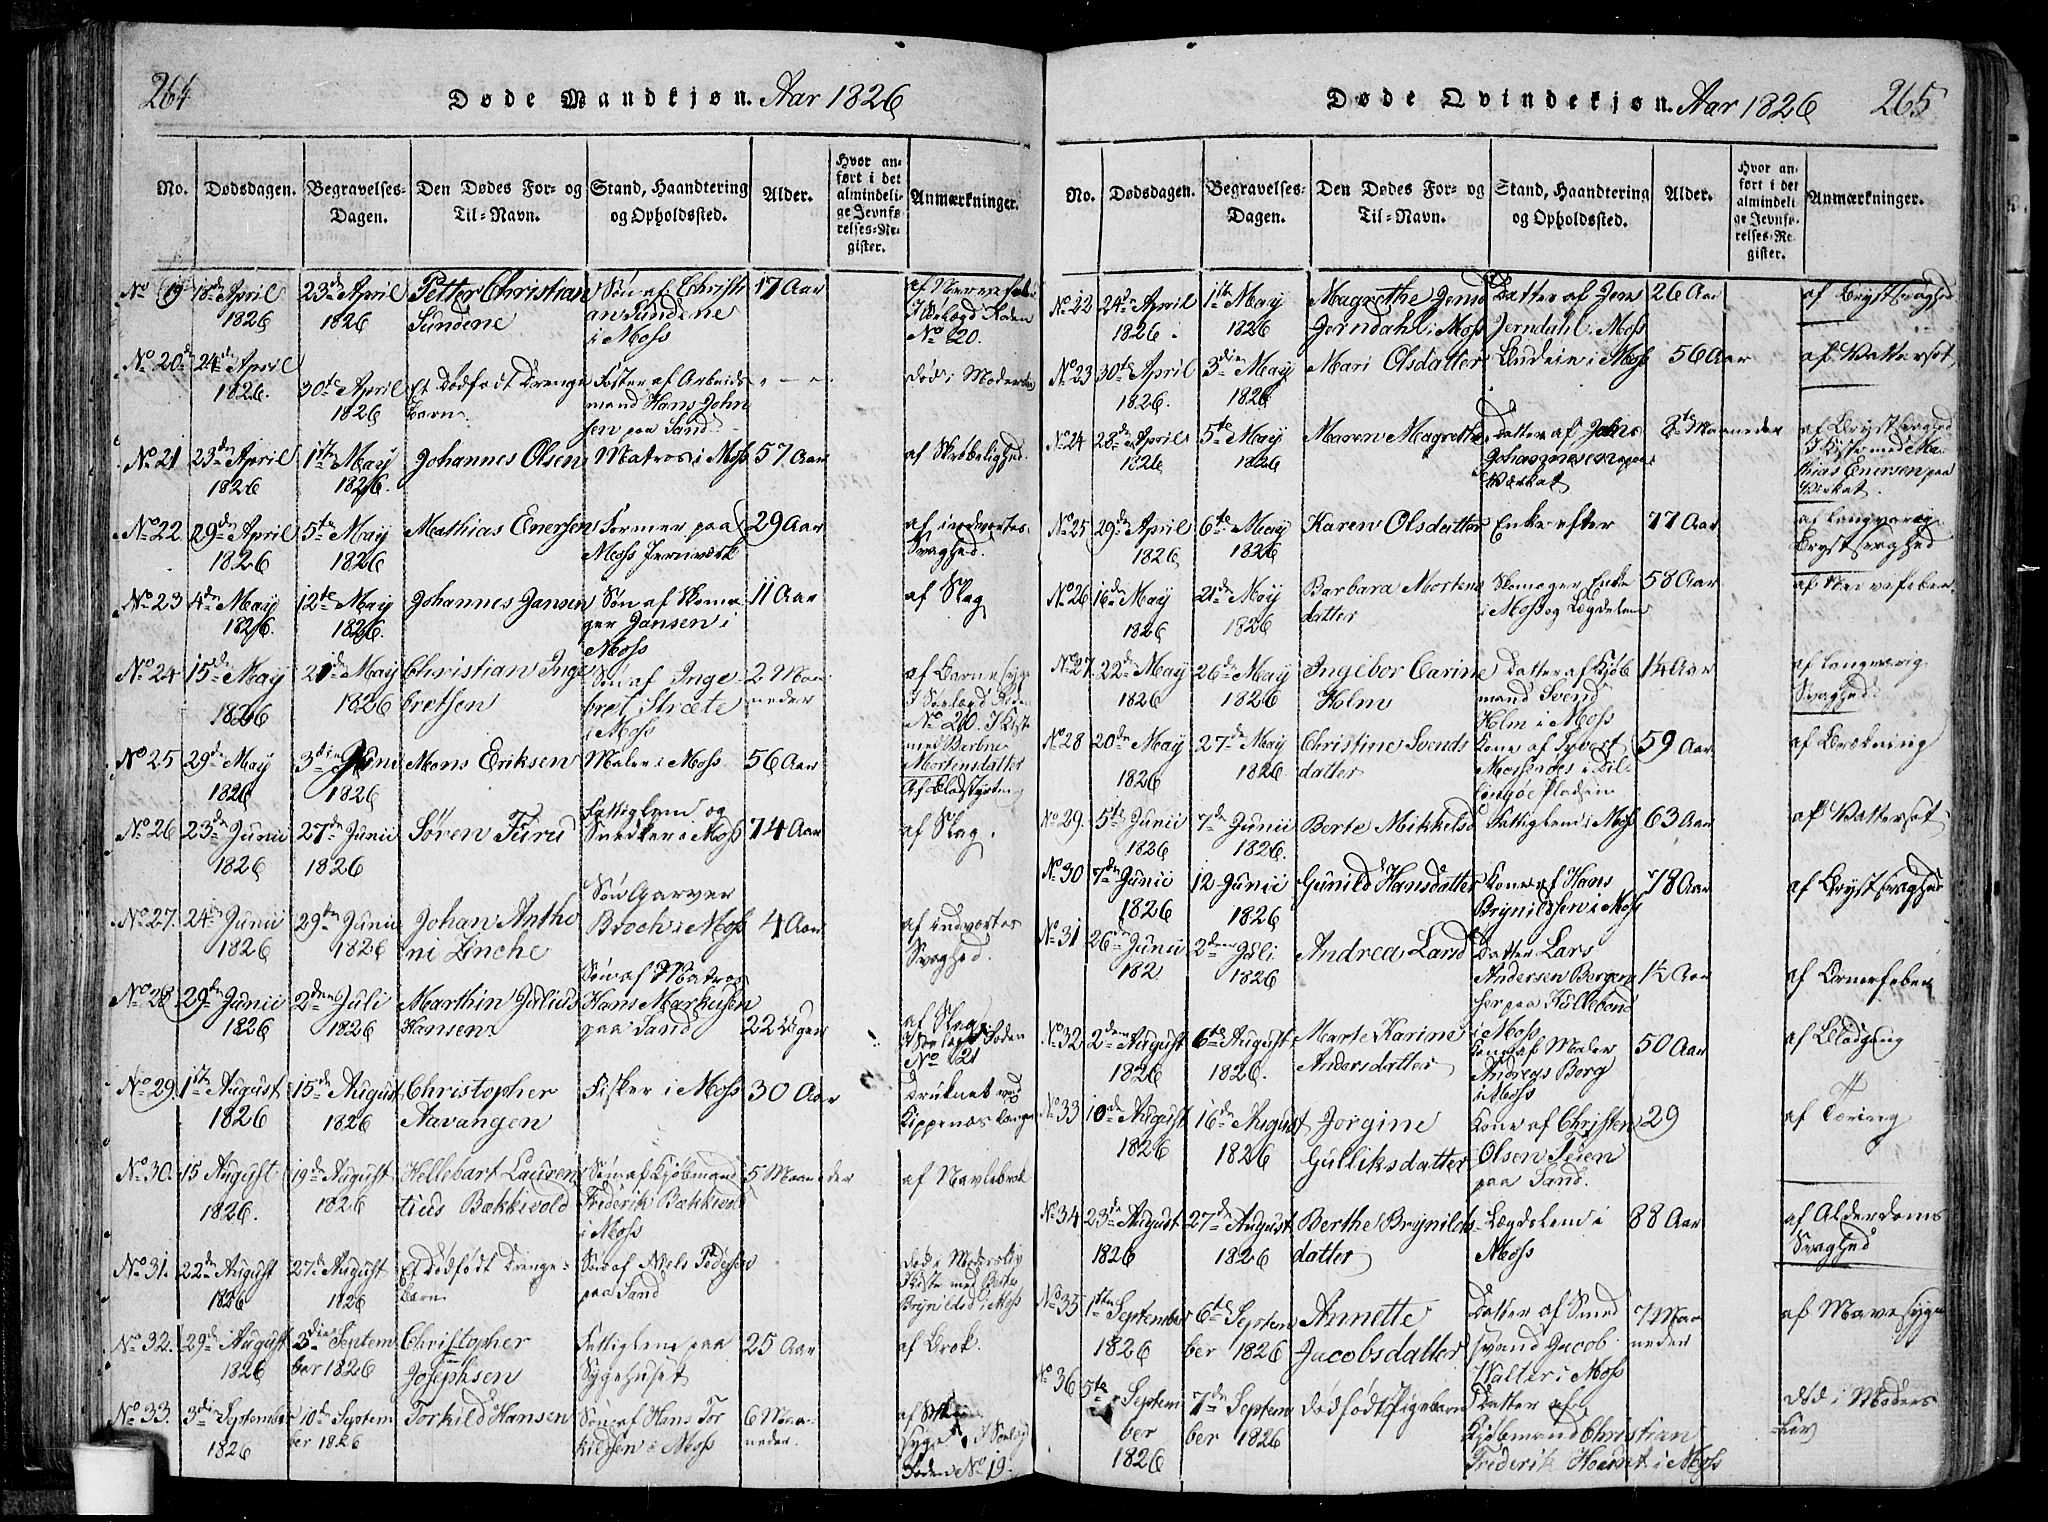 264
Døde Mandkjøn. Aar 1826
No.
Dødsdagen.
Begravelses-
Dagen.
Den Dødes For- og
Til-Navn.
Stand, Haandtering
og Opholdssted.
Alder.
Hvor an-
ført i det
almindeli-
ge Jevnfø-
relses-Re-
gister.
Anmærkninger.
No 19 18de April 1826 23de April 1826
Petter Christian
Sundene
Søn af Christi
an Sundene
i Moss
17 Aar
No 20.
No 20 24de April 1826. 30te April 1826
Et Dødfødt Drenge
Barn
Foster af Arbeids
mand Hans John
sen paa Sand
Død i Moders
No 21 23de April 1826 1ste May 1826.
Johannes Olsen
Matros i Moss
57 Aar
af Skrøbelighed.
No 22 29de April 1826 5te May 1826
Mathias Enersen
Former paa
Moss Jernværk
29 Aar
af indvortes
Svaghed.
No 23 4de May 1826. 12te May 1826.
Johannes Jansen
Søn af Skoma
ger Jansen i
Moss
11 Aar
af Slag
No 24 15de May 1826 21de May 1826
Christian Inge
bretsen
Søn af Inge
bret Stræte
i Moss
2 Maa
neder
No 20. I Kist
med
Mortensdatter
No 25 29de May 1826 3die Juni 1826
Mons Eriksen
Maler i Moss
56 Aar
No 26 23de Junii 1826 27de Junii 1826
Søren Furu
Fattiglem og
Snedker i Moss
74 Aar
af Slag.
No 27. 24de Junii 1826 29de Junii 1826
Johan Antho
ni Linche
Søn Garver
Broch i Moss
4 Aar
af indvortes
Svaghed.
No 28 29de Junii 1826 2den Juli 1826
Marthin Julius
Hansen
Søn af Matros
Hans Markusen
paa Sand
22 Uger
af Slag
No 21
No 29. 1ste August 1826 15de August 1826
Christopher
Aavangen
Fisker i Moss
30 Aar
Druknet ved
Kippenæs
No 30. 15 August 1826. 19de August 1826
Hellebart Lauren
tius Bakkivold
Søn af Kjøbmand
Frederik Bakkivold
i Moss
5 Maaneder
af Navlebrok
No 31. 22de August 1826 27de August 1826
Et Dødfødt Drenge-
Barn
Søn af Niels Pedersen
paa Sand
Død i Modersliv
Kiste med Berthe
Brynildsd i Moss
No 32. 29de August 1826 3die Septem
ber 1826
Christopher
Josephsen
Fattiglem paa
Sygehuset
25 Aar
af Brok.
No 33. 3die September 1826 10de Septem
ber 1826
Torkild Hansen
Søn af Hans Tor
kildsen i Moss
6 Maa-
neder.
syge
No 19.
265
Døde Qvindekjøn. Aar 1826
No.
Dødsdagen.
Begravelses-
Dagen.
Den Dødes For- og
Til-Navn.
Stand, Haandtering
og Opholdssted.
Alder.
Hvor an-
ført i det
almindeli
ge Jevnfø-
relses-Re-
gister.
Anmærkninger.
No 22 24de April 1826. 1ste May 1826
Magrethe Jensd
Jerndahl i Moss
Datter af Jens
Jerndahl Moss
26 Aar
af Brystsvaghed
No 23 30te April 1826. 3die May 1826
Mari Olsdatter
i Moss
56 Aar
af Vattersot,
No 24 28de April 1826 5te May 1826
Maren Magrethe
Datter af Johs
Johannesen
Værket
8te Maaneder
af Brystsvaghed
I Kiste med Ma-
thias Enersen paa
Værket.
No 25 29de April 1826 6te May 1826
Karen Olsdatter
Enke efter
77 Aar
af langvarig
Brystsvaghed
No 26 16de May 1826 21de May 1826
Barbara Mortens
datter
Skomager Enke
i Moss og Lægdslem
58 Aar
af Nervefeber.
No 27 22de May 1826 26de May 1826
Ingebor Carine
Holm
Datter af Kjøb
mand Svend
Holm i Moss
14 Aar
af langvarig
Svaghed.
No 28 20de May 1826 27de May 1826
Christine Svends
datter
Kone af Syvert
59 Aar
af Brækning
No 29. 5te Junii 1826 7de Junii 1826.
Berte Mikkelsd
Fattiglem i Moss
63 Aar
af Vattersot
No 30 7de Junii 1826 12 Junii 1826
Gunild Hansdatter
Kone af Hans
Brynildsen i Moss
78 Aar
af Brystsvaghed
No 31 26de Junii 182 2den Juli 1826
Andrea Larsd
Datter Lars
Andersen Berger
sen paa Kullebund
i Moss
1½ Aar
af Ormefeber
No 32 2den August 1826 6te August 1826.
Marte Karine
Andersdatter
Kone af Maler
Andreas Berg
i Moss
50 Aar
af Blodgang
No 33 10de August 1826 16de August 1826
Jorgine
Gulliksdatter
Kone af Christen
Olsen Teien
paa Sand.
29
af Tæring
No 34 23de August 1826 27de August 1826
Berthe Brynilds
datter
Lægdslem i
Moss
88 Aar
af Alderdoms
Svaghed
No 35 1ste September 1826 6te Septem
ber 1826
Annette
Jacobsdatter
Datter af Smed
svend Jacob
Walter i Moss
7 Maa
neder
af Mavesyge
No 36 5te Septem
ber
1826 7de Septem
ber 1826
Dødfødt Pigebarn
Datter af
Kjøbmand Christian
Frederik Hornt i Moss
Død i Moders
Liv